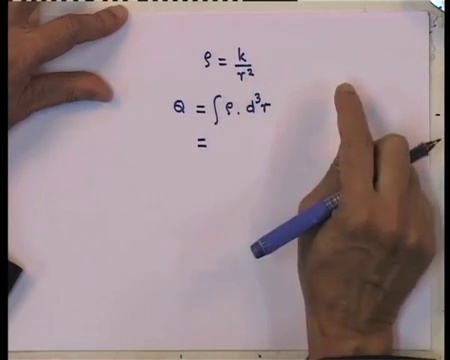 ρ = k/r²
Q = ∫ ρ. d³r
=